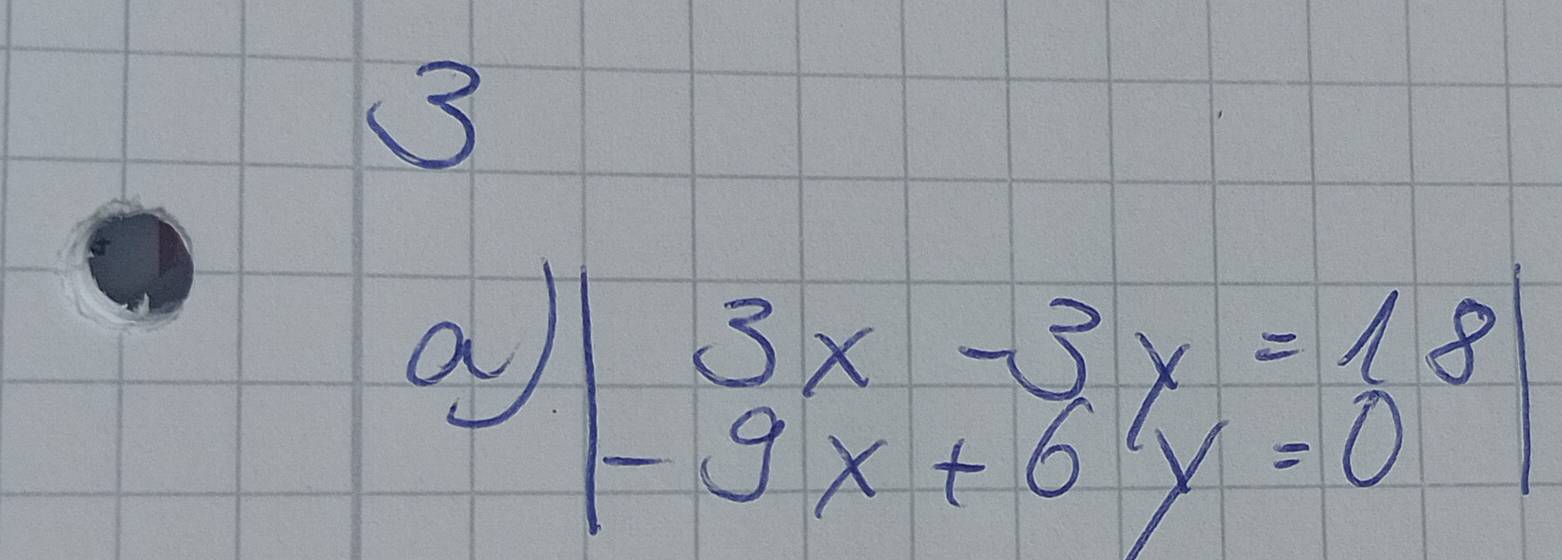 3
a) | 3x - 3y = 18 |
| - 9x + 6y = 0 |